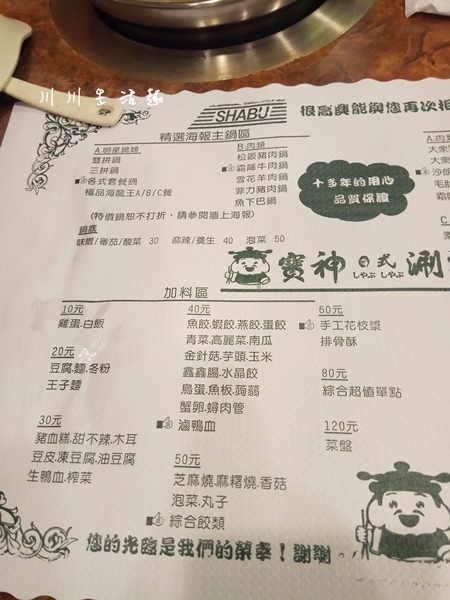 川川生活趣
SHABU
很高興能與您再次相
精選海報主鍋區
A.明星鍋類
雙拼鍋
三拼鍋
各式套餐鍋
極品海龍王A/B/C餐
B.肉類
松阪豬肉鍋
霜降牛肉鍋
雪花羊肉鍋
菲力豬肉鍋
魚下巴鍋
(特價鍋恕不打折，請參閱牆上海報)
鍋底
味噌/番茄/酸菜 30 麻辣/養生 40 泡菜 50
十多年的用心
品質保證
A.肉
大眾
大眾
沙朗
毛肚
霜降
C
寶神日式涮涮
しゃぶ しゃぶ
加料區
10元
雞蛋.白飯
20元
豆腐.麵.冬粉
王子麵
30元
豬血糕.甜不辣.木耳
豆皮凍豆腐.油豆腐
生鴨血.榨菜
40元
魚餃.蝦餃.燕餃.蛋餃
青菜.高麗菜.南瓜
金針菇.芋頭.玉米
鑫鑫腸.水晶餃
鳥蛋.魚板.蒟蒻
蟹卵.蟳肉管
滷鴨血
50元
芝麻燒.麻糬燒.香菇
泡菜.丸子
綜合餃類
60元
手工花枝漿
排骨酥
80元
綜合超值單點
120元
菜盤
您的光臨是我們的榮幸！謝謝。